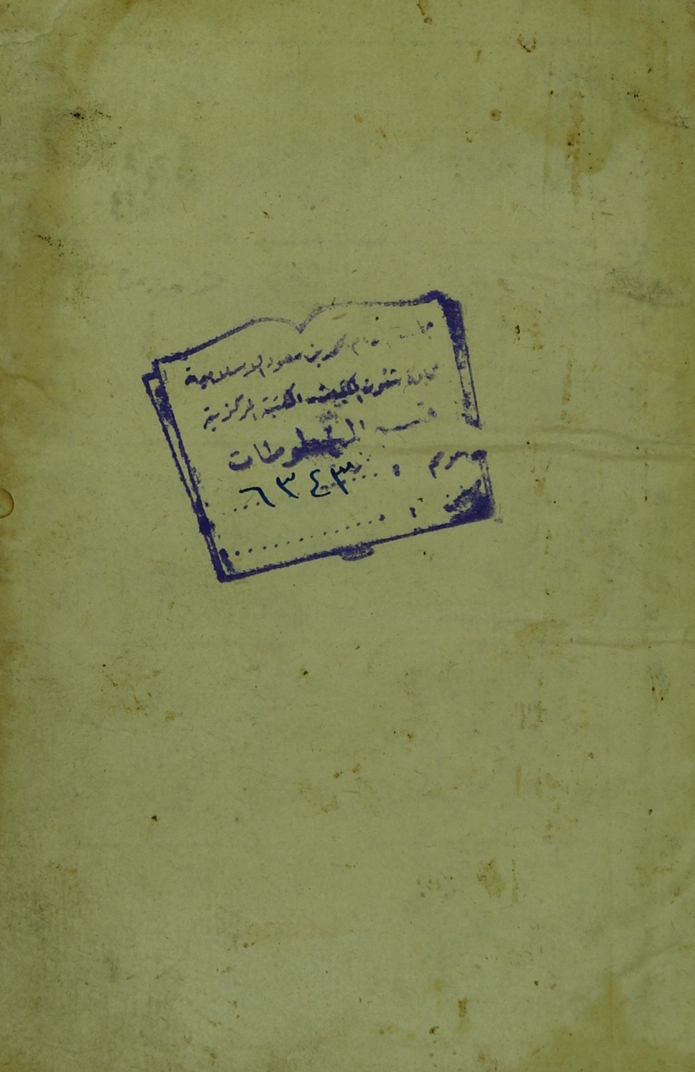 جامعة الإمام محمد بن سعود الإسلامية
عمادة شئون المكتبات المكتبة المركزية
قسم المخطوطات
٦٣٤٣